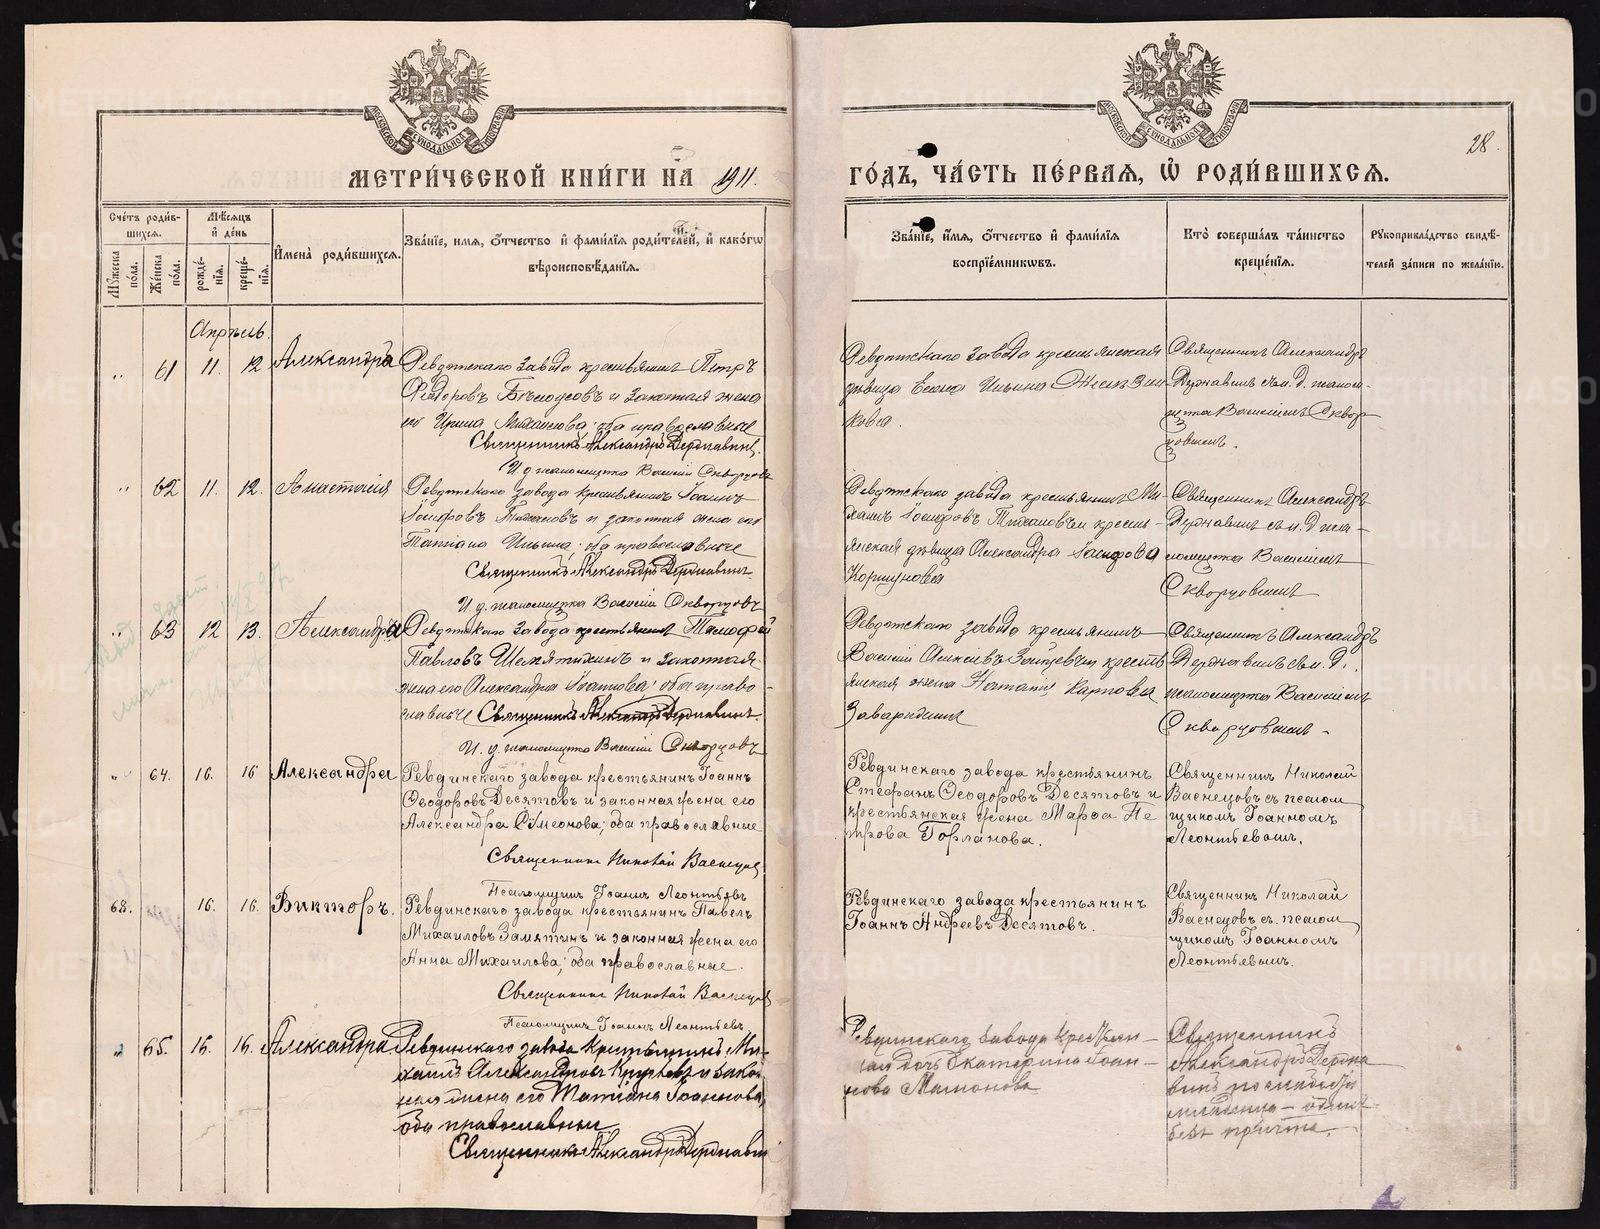 МЕТРИ́ЧЕСКОЙ КНИ́ГИ НА 1911.
ГО́ДЪ, ЧА́СТЬ ПЕ́РВАЯ, Ѽ РОДИ́ВШИХСЯ.
28.
Сче́тъ роди́в-
шихся.
Мѣ́сяцъ
и де́нь
Му́жеска пола.
Же́нска пола.
рожде́-
нїя.
креще́-
нїя.
Имена̀ роди́вшихся.
Зва́нїе, имя, ѻ́тчество и фами́лїя роди́телей, и како́гѡ
вѣроисповѣ́данїя.
Зва́нїе, и́мя, ѻ́тчество и фами́лїя
воспрїе́мникѡвъ.
Кто̀ соверша́лъ та́инство
креще́нїя.
Рукоприкла́дство свидѣ́-
телей за́писи по жела́нїю.
Апрѣль.
61 11. 12 Александра
Ревдинскаго завода крестьянинъ Петръ
Ѳеодоровъ Бѣлоусовъ и законная жена
его Ирина Михаилова; оба православные
Священникъ Александръ Державинъ.
И. д. псаломщика Василій Скворцовъ
Ревдинскаго завода крестьянская
дѣвица Елена Ильина
кова.
Священникъ Александръ
Державинъ съ и. д. псалом-
щика Василіемъ Сквор-
цовымъ.
62 11. 12. Анастасія
Ревдинскаго завода крестьянинъ Іоаннъ
Іосифовъ Тихановъ и законная жена его
Татіана Ильина; оба православные
Священникъ Александръ Державинъ
И. д. псаломщика Василій Скворцовъ
Ревдинскаго завода крестьянинъ Ми-
хаилъ Іосифовъ Тихановъ и кресть-
янская дѣвица Александра Іосифова
Коршунова
Священникъ Александръ
Державинъ съ и. д. пса-
ломщика Василіемъ
Скворцовымъ
63 12 13. Александра
Ревдинскаго завода крестьянинъ Тимофей
Павловъ Шемятихинъ и законная
жена его Александра Іоаннова; оба право-
славные Священникъ Александръ Державинъ.
И. д. псаломщика Василій Скворцовъ
Ревдинскаго завода крестьянинъ
Василій Алексѣевъ Зайцевъ и кресть-
янская жена Наталія Карпова
Заварихина
Священникъ Александръ
Державинъ съ и. д.
псаломщика Василіемъ
Скворцовымъ.
64. 16. 16 Александра
Ревдинскаго завода крестьянинъ Іоаннъ
Ѳеодоровъ Десятовъ и законная жена его
Александра Сѵмеонова; оба православные
Священникъ Николай Васнецовъ
Псаломщикъ Іоаннъ Леонтьевъ
Ревдинскаго завода крестьянинъ
Стефанъ Ѳеодоровъ Десятовъ и
крестьянская жена Марѳа Пе
трова Горланова.
Священникъ Николай
Васнецовъ съ псалом
щикомъ Іоанномъ
Леонтьевымъ.
68. 16. 16. Викторъ.
Ревдинскаго завода крестьянинъ Павелъ
Михаиловъ Замятинъ и законная жена его
Анна Михаилова; оба православные.
Священникъ Николай Васнецовъ
Псаломщикъ Іоаннъ Леонтьевъ
Ревдинскаго завода крестьянинъ
Іоаннъ Андреевъ Десятовъ.
Священникъ Николай
Васнецовъ съ псалом
щикомъ Іоанномъ
Леонтьевымъ.
65. 16. 16. Александра
Ревдинскаго завода крестьянинъ Ми-
хаилъ Александровъ и закон-
ная жена его Татіана Іоаннова,
оба православные
Священникъ Александръ Державинъ
Ревдинскаго завода крестьян-
ская дочь Екатерина Іоан-
нова Мамонова
Священникъ
Александръ Держа
винъ по слабости
младенца - одинъ
безъ причта.
METRIKI.GASO-URAL.RU